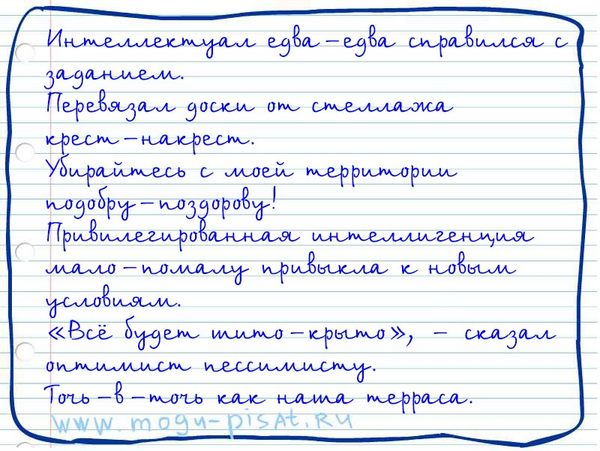 Интеллектуал едва-едва справился с
заданием.
Перевязал доски от стеллажа
крест-накрест.
Убирайтесь с моей территории
подобру-поздорову!
Привилегированная интеллигенция
мало-помалу привыкла к новым
условиям.
«Всё будет шито-крыто», – сказал
оптимист пессимисту.
Точь-в-точь как наша терраса.
www.mogu-pisat.ru